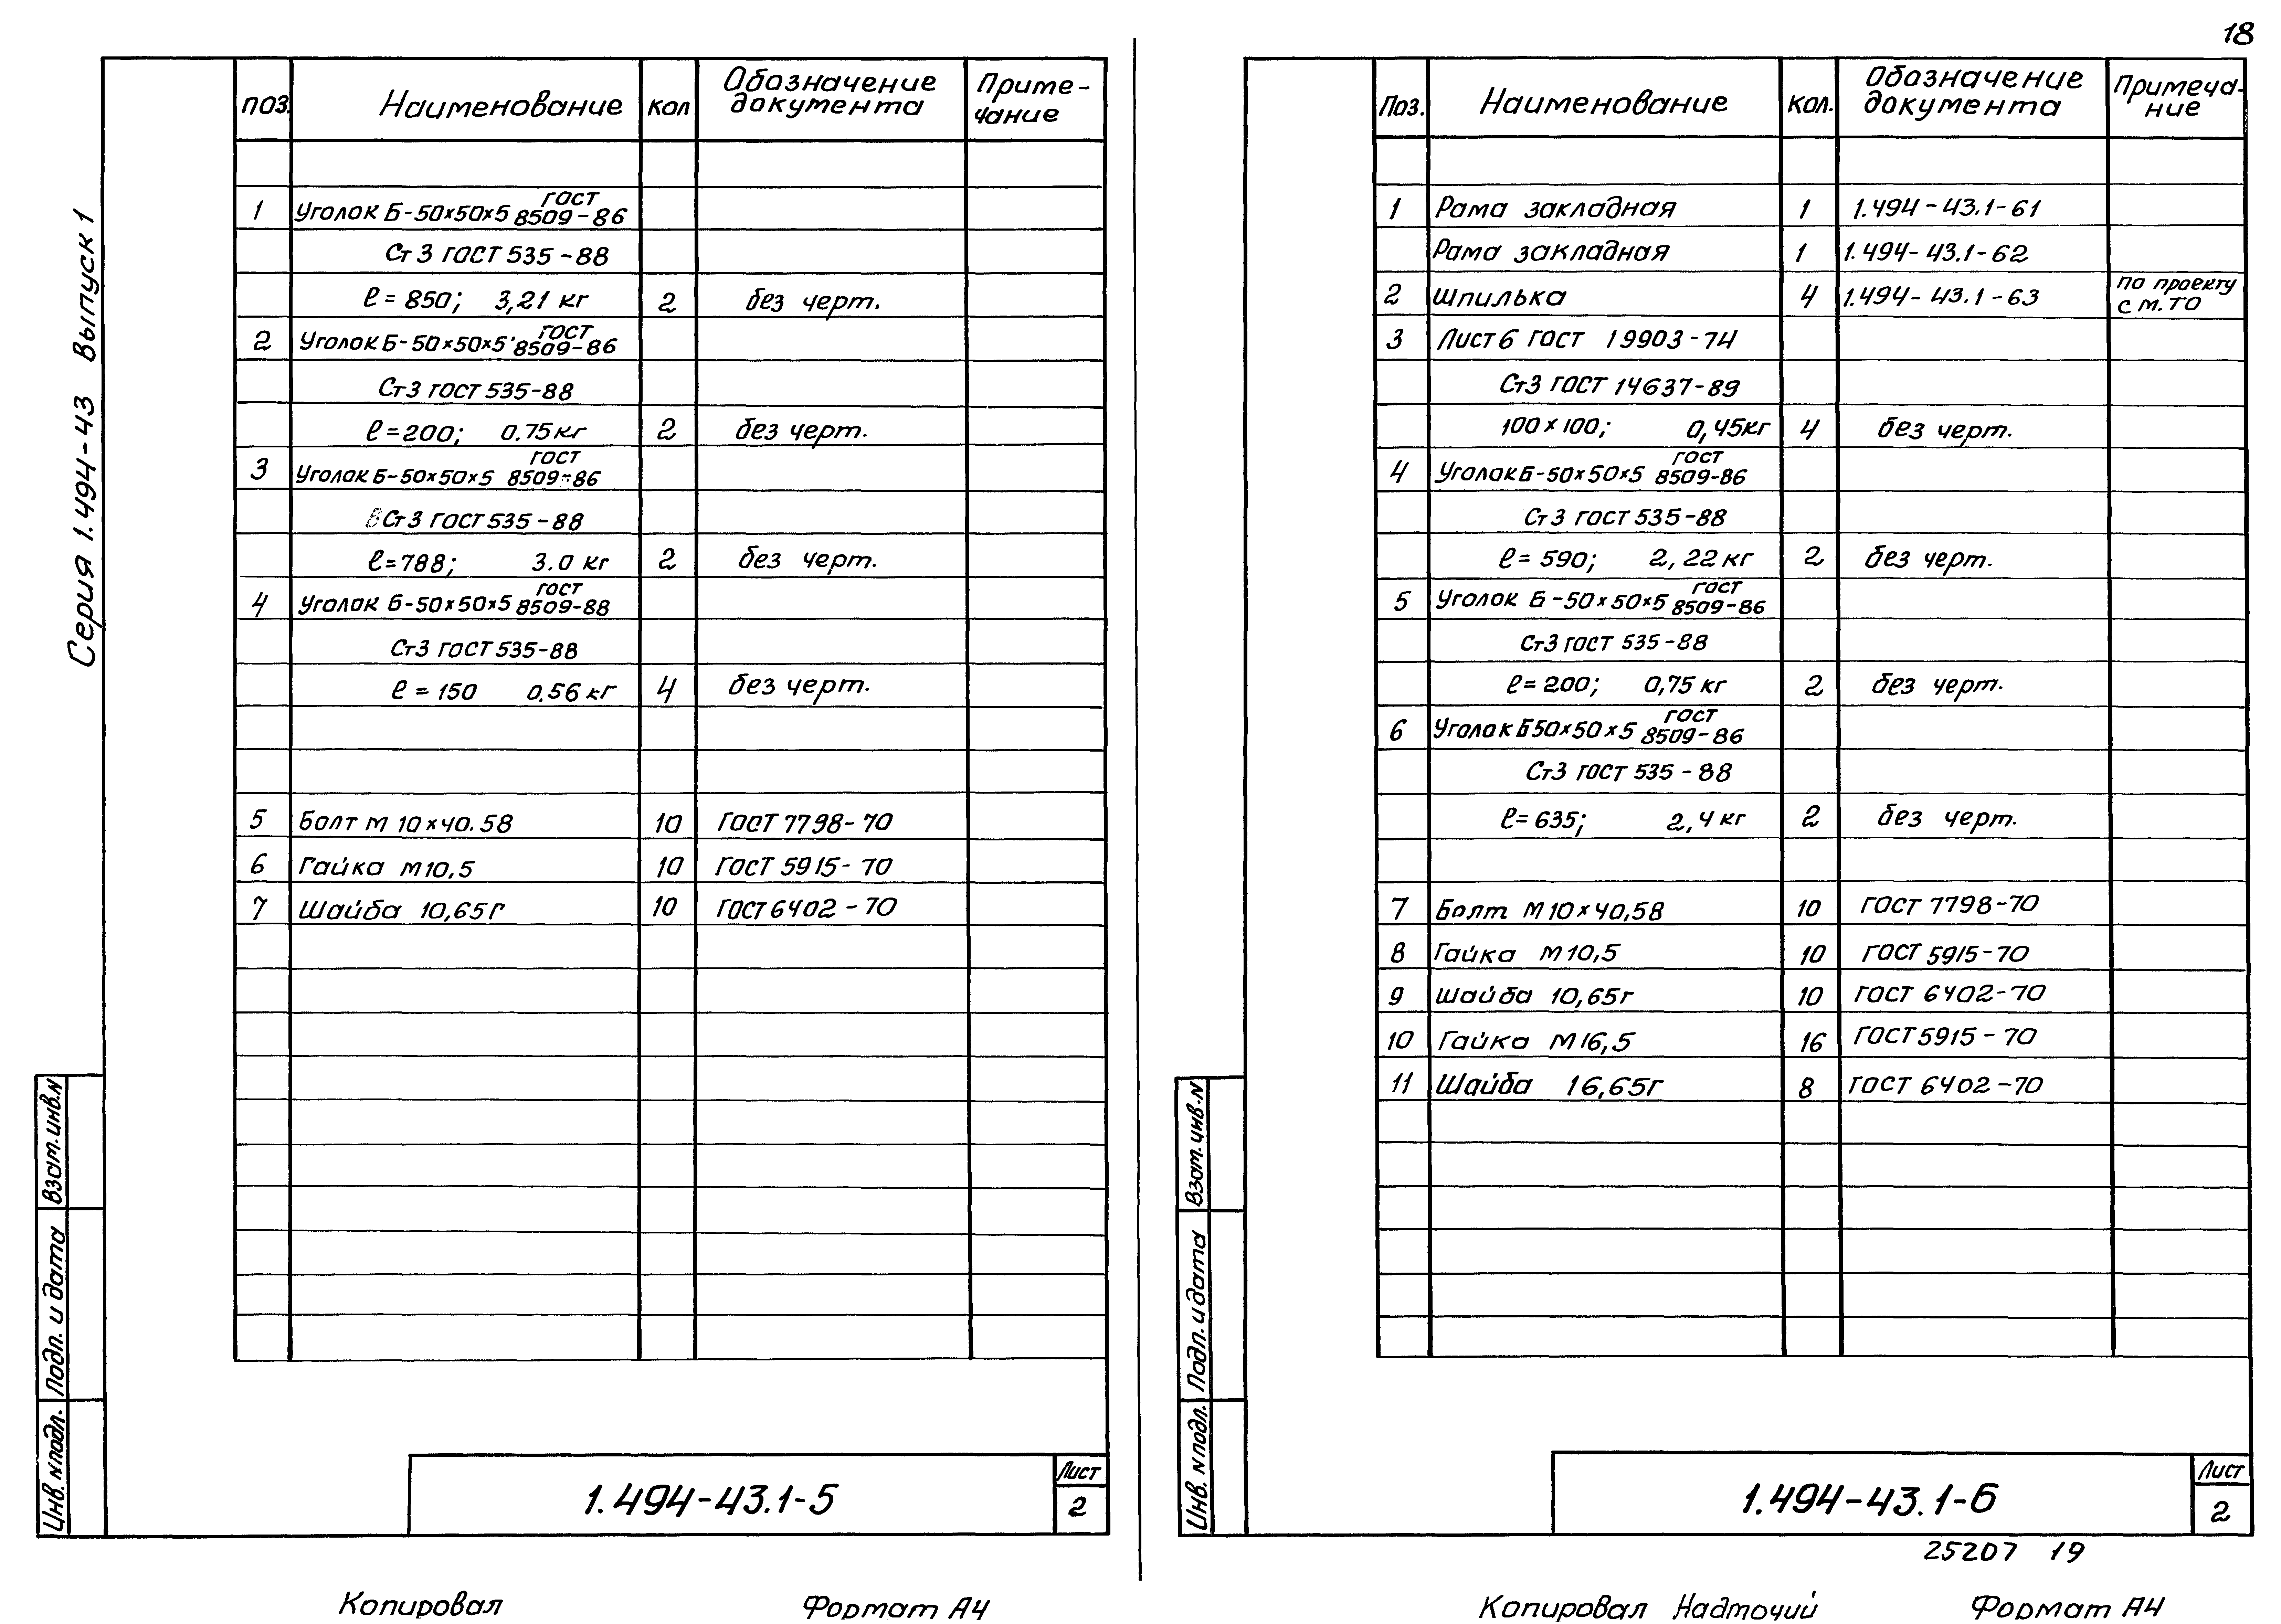 18
Серия 1.494-43 Выпуск 1
поз. Наименование кол Обозначение документа Примечание
1 Уголок Б-50×50×5 ГОСТ 8509-86
Ст 3 ГОСТ 535-88
ℓ= 850; 3,21 кг 2 без черт.
2 Уголок Б-50×50×5 ГОСТ 8509-86
Ст3 ГОСТ 535-88
ℓ=200; 0.75 кг 2 без черт.
3 Уголок Б-50×50×5 ГОСТ 8509-86
Ст3 ГОСТ 535-88
ℓ=788; 3.0 кг 2 без черт.
4 Уголок Б-50×50×5 ГОСТ 8509-88
Ст3 ГОСТ 535-88
ℓ = 150 0.56 кг 4 без черт.
5 Болт М 10×40.58 10 ГОСТ 7798-70
6 Гайка М10,5 10 ГОСТ 5915-70
7 Шайба 10,65Г 10 ГОСТ 6402-70
Взам.инв.N
Подп. и дата
Инв. N подл.
1.494-43.1-5
Лист
2
Копировал Формат А4
Поз. Наименование Кол. Обозначение документа Примечание
1 Рама закладная 1 1.494-43.1-61
Рама закладная 1 1.494-43.1-62
2 Шпилька 4 1.494-43.1-63 по проекту с м. ТО
3 Лист 6 ГОСТ 19903-74
Ст3 ГОСТ 14637-89
100×100; 0,45кг 4 без черт.
4 Уголок Б-50×50×5 ГОСТ 8509-86
Ст 3 ГОСТ 535-88
ℓ= 590; 2,22 кг 2 без черт.
5 Уголок Б-50×50×5 ГОСТ 8509-86
Ст3 ГОСТ 535-88
ℓ= 200; 0,75 кг 2 без черт.
6 Уголок Б50×50×5 ГОСТ 8509-86
Ст3 ГОСТ 535-88
ℓ= 635; 2,4 кг 2 без черт.
7 Болт М10×40,58 10 ГОСТ 7798-70
8 Гайка М10,5 10 ГОСТ 5915-70
9 Шайба 10,65г 10 ГОСТ 6402-70
10 Гайка М16,5 16 ГОСТ 5915-70
11 Шайба 16,65г 8 ГОСТ 6402-70
Взам.инв.N
Подп. и дата
Инв. N подл.
1.494-43.1-6
Лист
2
25207 19
Копировал Надточий Формат А4